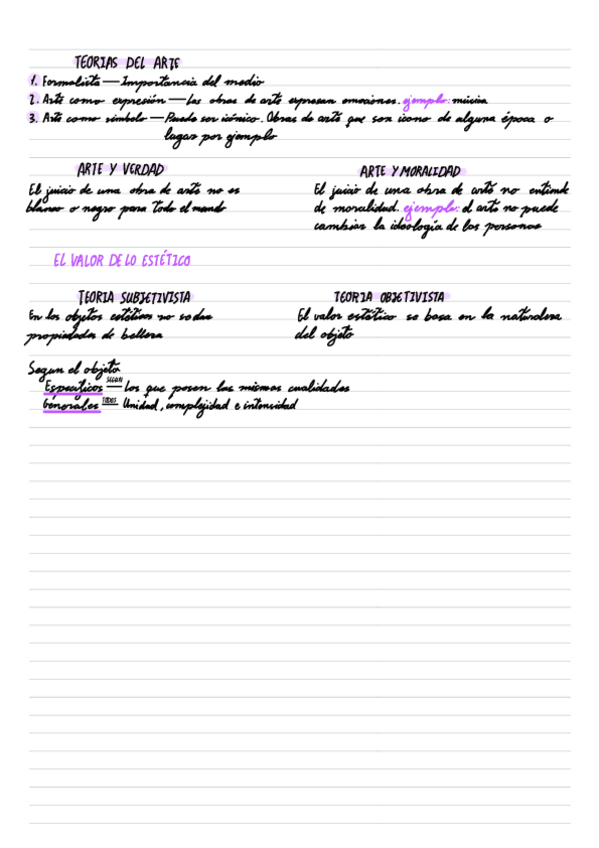 TEORIAS DEL ARTE
1. Formalista — Importancia del medio
2. Arte como expresión — Las obras de arte expresan emociones. ejemplo: música
3. Arte como símbolo — Puede ser icónico. Obras de arte que son icono de alguna época o
lugar por ejemplo
ARTE Y VERDAD
El juicio de una obra de arte no es
blanco o negro para todo el mundo
ARTE Y MORALIDAD
El juicio de una obra de arte no entiende
de moralidad. ejemplo: el arte no puede
cambiar la ideología de las personas
EL VALOR DE LO ESTÉTICO
TEORIA SUBJETIVISTA
En los objetos estéticos no so dan
propiedades de belleza
TEORIA OBJETIVISTA
El valor estético se basa en la naturaleza
del objeto
Segun el objeto
Específicos — SEGUN Los que poseen las mismas cualidades
Generales — TODOS Unidad, complejidad e intensidad